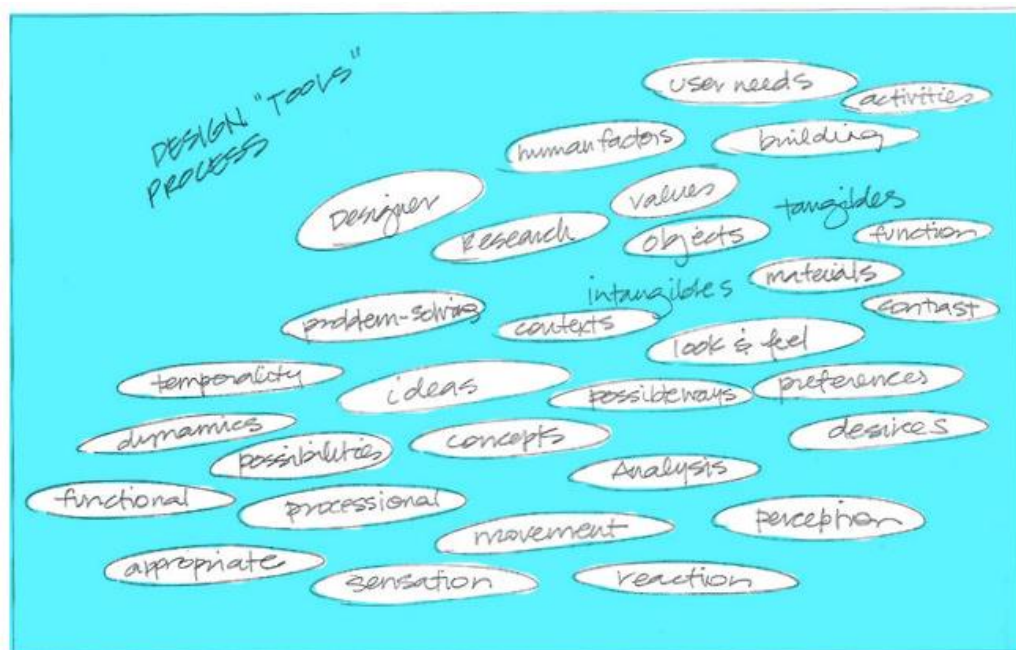 DESIGN "TOOLS"
PROCESS
user needs
activities
human factors
building
Designer
values
tangibles
Research
objects
function
intangibles
materials
problem-solving
contexts
contrast
look & feel
temporality
ideas
possibleways
preferences
dynamics
possibilities
concepts
desires
Analysis
functional
processional
movement
perception
appropriate
sensation
reaction